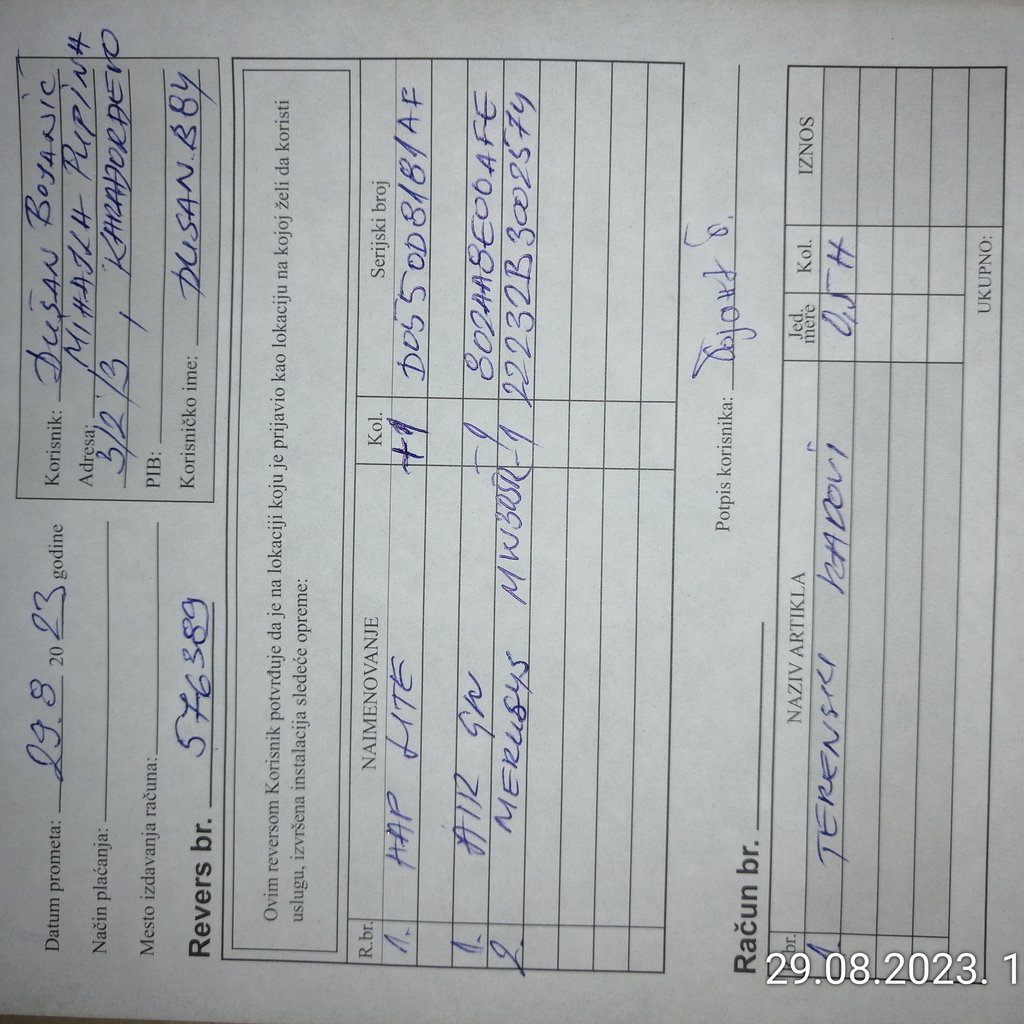 Datum prometa: 29.8 2023 godine
Način plaćanja:
Mesto izdavanja računa:
Revers br. 576389
Korisnik: DUŠAN BOJANIĆ
Adresa: MIHAJLA PUPINA
3/2/3, KARAĐORĐEVO
PIB:
Korisničko ime: DUSAN.BB4
Ovim reversom Korisnik potvrđuje da je na lokaciji koju je prijavio kao lokaciju na kojoj želi da koristi
uslugu, izvršena instalacija sledeće opreme:
R.br. NAIMENOVANJE Kol. Serijski broj
1. HAP LITE +1 D0550D8181AF
1. AIR GW -1 802AA8E0DAFE
2. MERUSYS MW305R -1 22232B3002574
Potpis korisnika:
Račun br.
br. NAZIV ARTIKLA Jed. mere Kol. IZNOS
1. TERENSKI RADOVI 0,5 H
UKUPNO:
29.08.2023. 1